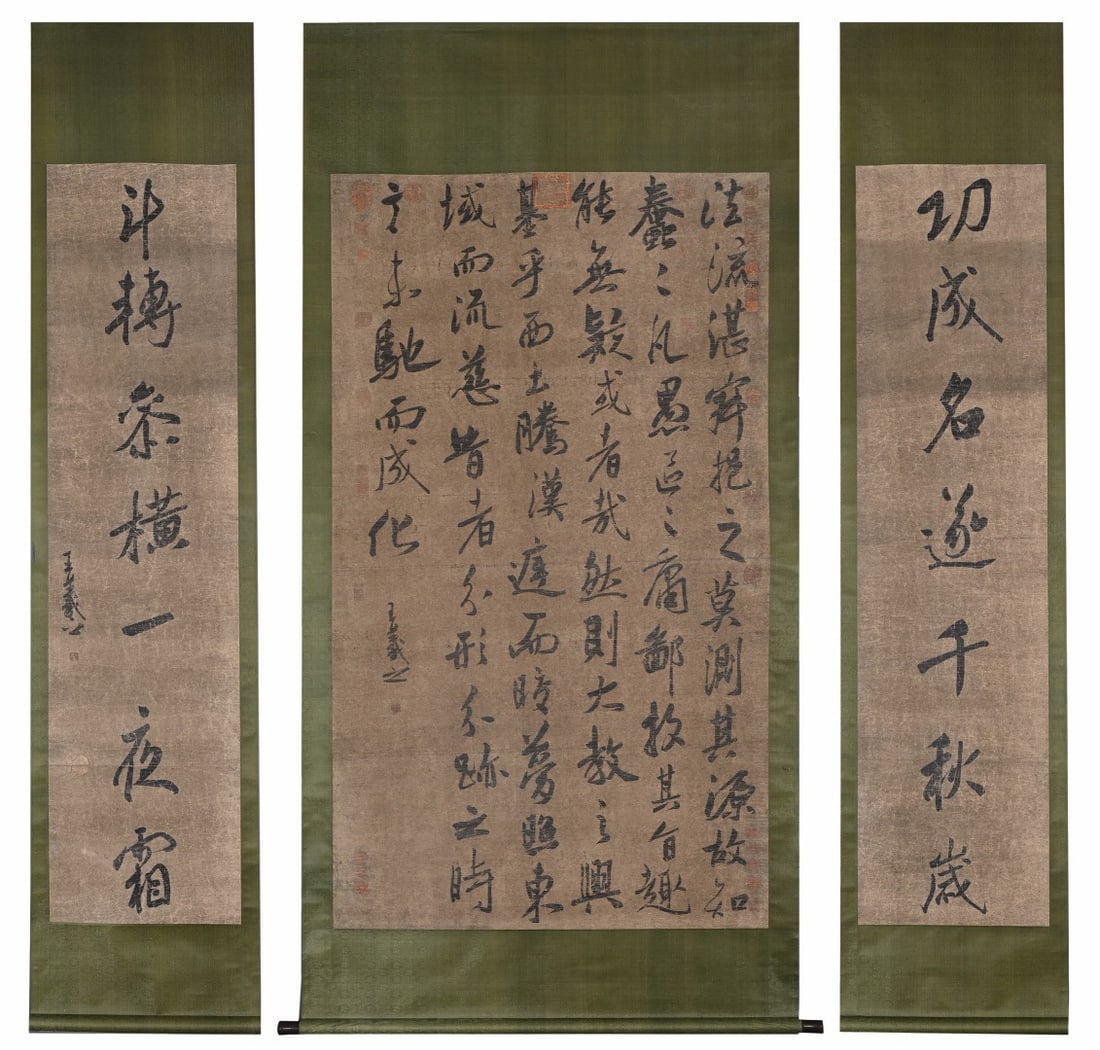 功成名遂千秋歲
法流湛寂挹之莫測其源故知
蠢〻凡愚區〻庸鄙投其旨趣
能無疑或者哉然則大教之興
基乎西土騰漢庭而晈夢照東
域而流慈昔者分形分跡之時
言未馳而成化
王羲之
斗轉參橫一夜霜
王羲之